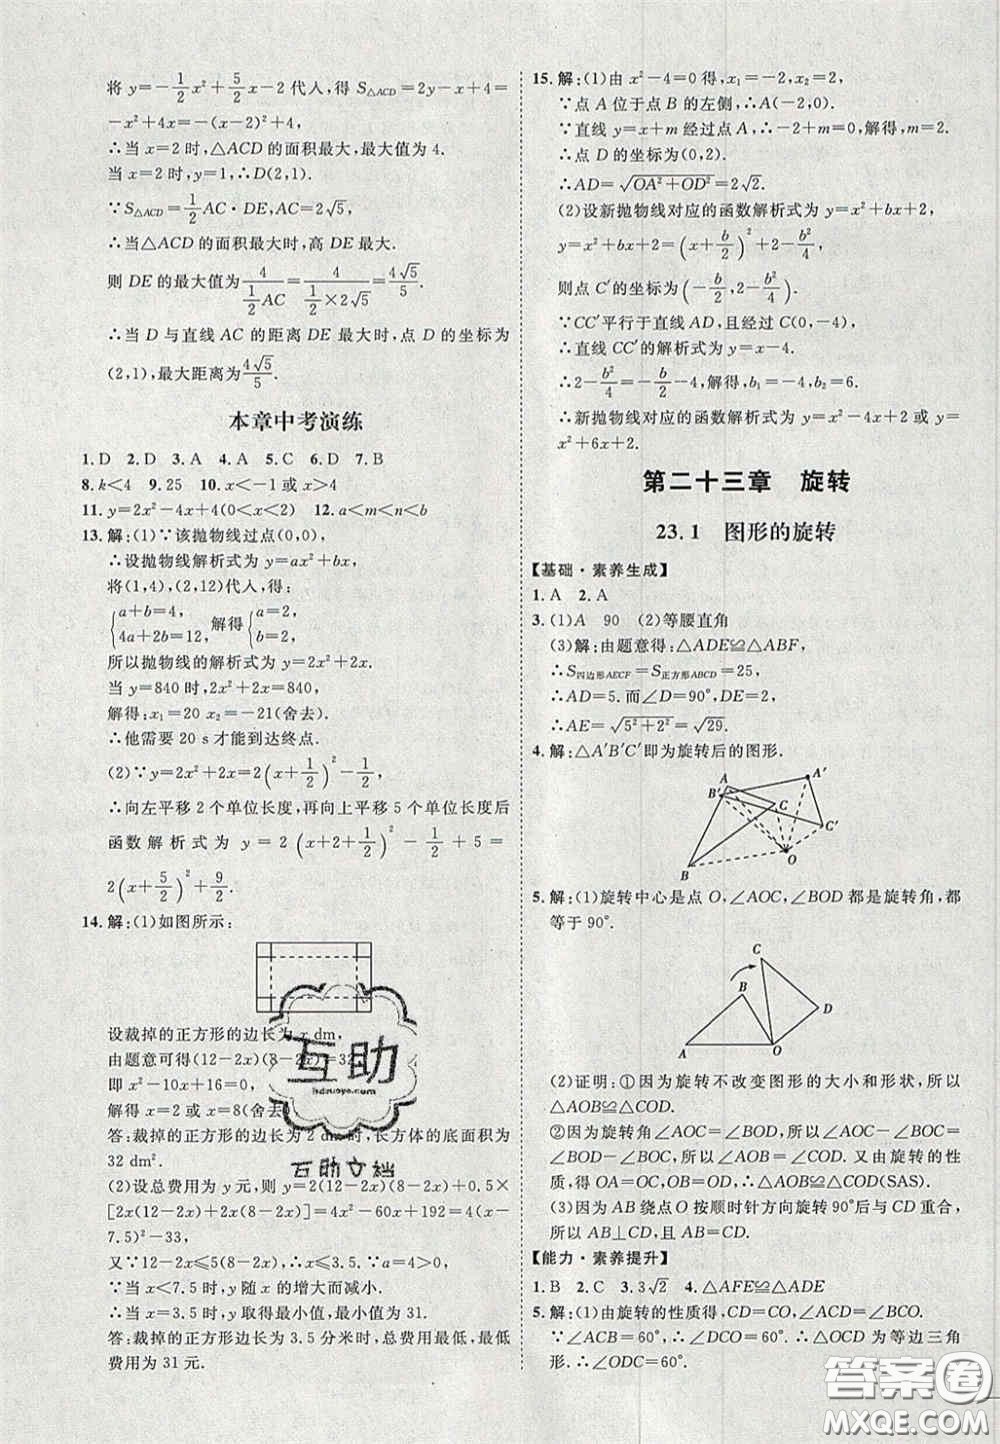 将 y=-1/2x²+5/2x-2 代人,得 S△ACD=2y-x+4=
-x²+4x=-(x-2)²+4,
∴当 x=2 时,△ACD 的面积最大,最大值为 4.
当 x=2 时,y=1,∴D(2,1).
∵S△ACD=1/2AC·DE,AC=2√5,
∴当△ACD 的面积最大时,高 DE 最大.
则 DE 的最大值为 4/(1/2AC)=4/(1/2×2√5)=4√5/5.
∴当 D 与直线 AC 的距离 DE 最大时,点 D 的坐标为
(2,1),最大距离为 4√5/5.
本章中考演练
1.D 2.D 3.A 4.A 5.C 6.D 7.B
8.k<4 9.25 10.x<-1 或 x>4
11.y=2x²-4x+4(0<x<2) 12.a<m<n<b
13.解:(1)∵该抛物线过点(0,0),
∴设抛物线解析式为 y=ax²+bx,
将(1,4),(2,12)代人,得:
{a+b=4, 4a+2b=12, 解得{a=2, b=2.
所以抛物线的解析式为 y=2x²+2x.
当 y=840 时,2x²+2x=840,
解得:x₁=20 x₂=-21(舍去).
∴他需要 20 s 才能到达终点.
(2)∵y=2x²+2x=2(x+1/2)²-1/2,
∴向左平移 2 个单位长度,再向上平移 5 个单位长度后
函数解析式为 y=2(x+2+1/2)²-1/2+5=
2(x+5/2)²+9/2.
14.解:(1)如图所示:
设裁掉的正方形的边长为 x dm,
由题意可得(12-2x)(8-2x)=32,
即 x²-10x+16=0,
解得 x=2 或 x=8(舍去).
答:裁掉的正方形的边长为 2 dm,长方体的底面积为
32 dm².
(2)设总费用为 y 元,则 y=2(12-2x)(8-2x)+0.5×
[2x(12-2x)+2x(8-2x)]=4x²-60x+192=4(x-
7.5)²-33,
又∵12-2x≤5(8-2x),∴x≤3.5.∵a=4>0,
∴当 x<7.5 时,y 随 x 的增大而减小.
∴当 x=3.5 时,y 取得最小值,最小值为 31.
答:裁掉的正方形边长为 3.5 分米时,总费用最低,最低
费用为 31 元.
15.解:(1)由 x²-4=0 得,x₁=-2,x₂=2,
∵点 A 位于点 B 的左侧,∴A(-2,0).
∵直线 y=x+m 经过点 A,∴-2+m=0,解得,m=2.
∴点 D 的坐标为(0,2).
∴AD=√(OA²+OD²)=2√2.
(2)设新抛物线对应的函数解析式为 y=x²+bx+2,
y=x²+bx+2=(x+b/2)²+2-b²/4,
则点 C′的坐标为(-b/2,2-b²/4).
∵CC′平行于直线 AD,且经过 C(0,-4),
∴直线 CC′的解析式为 y=x-4.
∴2-b²/4=-b/2-4,解得,b₁=-4,b₂=6.
∴新抛物线对应的函数解析式为 y=x²-4x+2 或 y=
x²+6x+2.
第二十三章 旋转
23.1 图形的旋转
【基础·素养生成】
1.A 2.A
3.(1)A 90 (2)等腰直角
(3)解:由题意得:△ADE≌△ABF.
∴S四边形AECF=S正方形ABCD=25,
∴AD=5.而∠D=90°,DE=2,
∴AE=√(5²+2²)=√29.
4.解:△A′B′C′即为旋转后的图形.
A′
A
B′
C
C′
O
B
5.解:(1)旋转中心是点 O,∠AOC,∠BOD 都是旋转角,都
等于 90°.
C
B
D
A
O
(2)证明:①因为旋转不改变图形的大小和形状,所以
△AOB≌△COD.
②因为旋转角∠AOC=∠BOD,所以∠AOC-∠BOC=
∠BOD-∠BOC,即∠AOB=∠COD.又由旋转的性
质,得 OA=OC,OB=OD,∴△AOB≌△COD(SAS).
(3)因为 AB 绕点 O 按顺时针方向旋转 90°后与 CD 重合,
所以 AB⊥CD,且 AB=CD.
【能力·素养提升】
1.B 2.C 3.3√2 4.△AFE≌△ADE
5.解:(1)由旋转的性质得,CD=CO,∠ACD=∠BCO.
∵∠ACB=60°,∴∠DCO=60°.∴△OCD 为等边三角
形.∴∠ODC=60°.
互助
hdzuoye.com
互助文档
答案圈
MXQE.COM